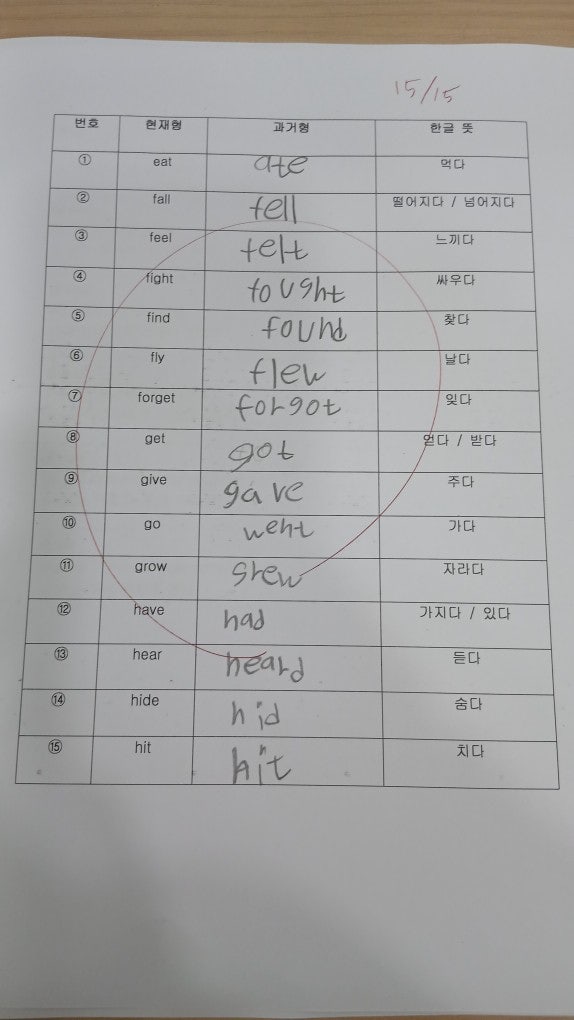 15/15
번호 현재형 과거형 한글 뜻
① eat ate 먹다
② fall fell 떨어지다 / 넘어지다
③ feel felt 느끼다
④ fight fought 싸우다
⑤ find found 찾다
⑥ fly flew 날다
⑦ forget forgot 잊다
⑧ get got 얻다 / 받다
⑨ give gave 주다
⑩ go went 가다
⑪ grow grew 자라다
⑫ have had 가지다 / 있다
⑬ hear heard 듣다
⑭ hide hid 숨다
⑮ hit hit 치다